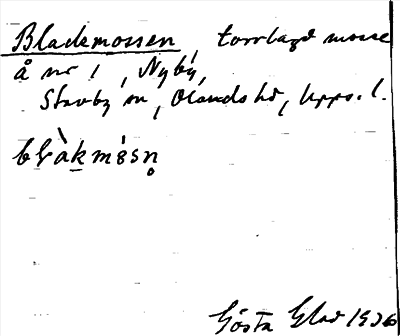 Blackmossen, torrlagd mosse
å nr 1, Nyby,
Stavby sn, Olands hd, Upps. l.
blàkmósn̥
Gösta Glad 1936